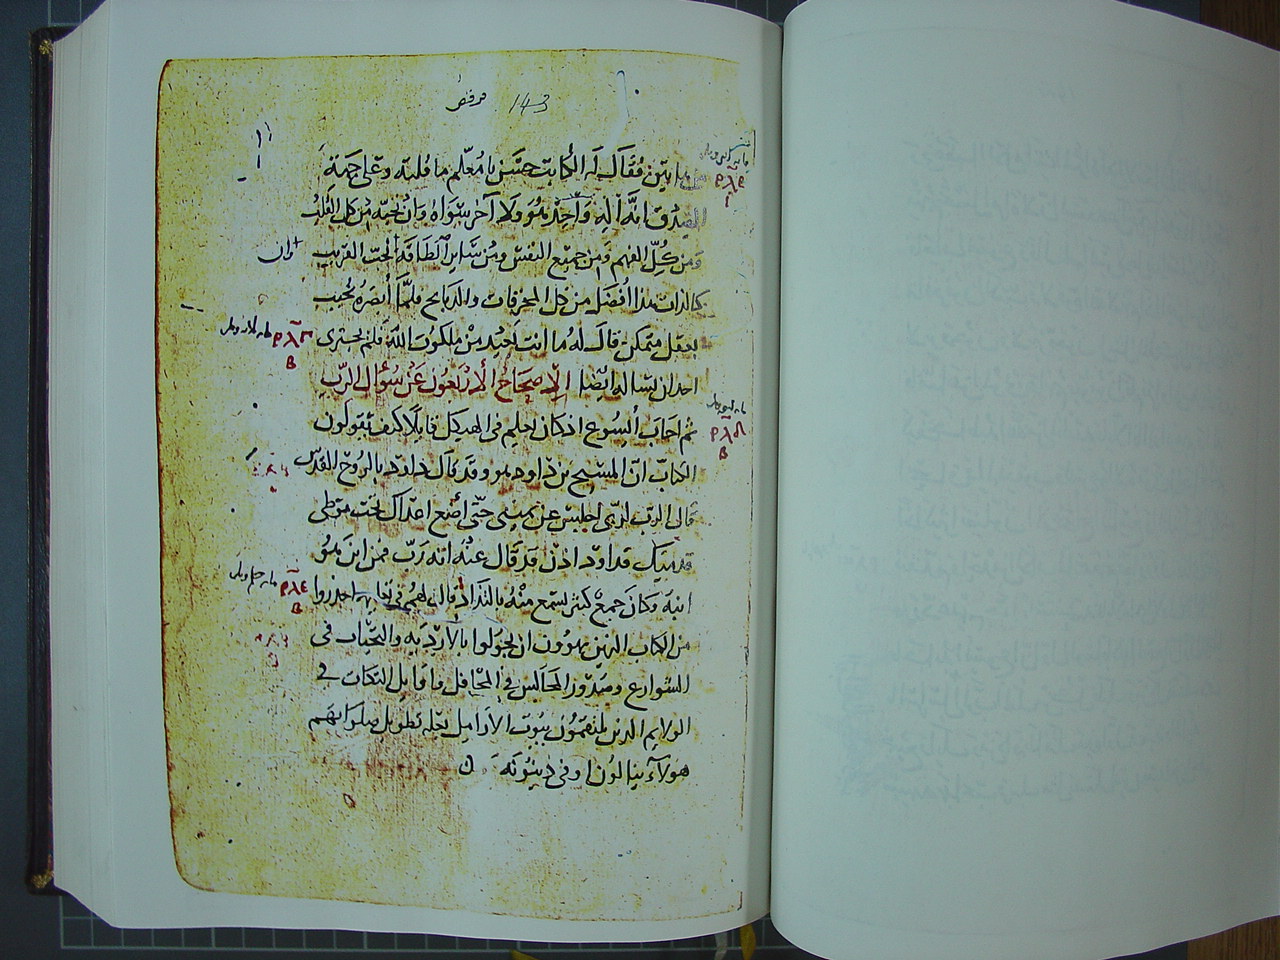 مرقص 143
من هاتين فقال له الكاتب حسن يا معلم ما قلته وعلى جهة
الصدق انه اله واحد هو ولا اخر سواه وان نحبه من كل القلب
ومن كل الفهم ومن جميع النفس ومن ساير الطاقة وان نحب القريب
كالذات هذا افضل من كل المحرقات والذبايح فلما أبصره يجيب
بعقل متمكن قال له ما انت بعيد من ملكوت الله فلم يجترى
احد ان يساله ايضا الاصحاح الاربعون عن سؤال الرب
ثم اجاب أيسوع اذ كان يعلم في الهيكل قايلا كيف يقولون
الكتاب ان المسيح بن داود هو وقد قال داود بالروح القدس
قال الرب لربي اجلس عن يميني حتى أضع اعداك تحت موطى
قدميك فداود اذن قد قال عنه انه رب فمن اين هو
ابنه وكان جمع كثير يسمع منه بالتذاذ قال لهم في تعليمه احذروا
من الكتاب الذين يهوون ان يجولوا بالاردية والتحيات في
الشوارع وصدور المجالس في المحافل واوايل التكات في
الولايم الذين يلتقمون بيوت الارامل بعلة تطويل صلواتهم
هولاء ينالون اوفى دينونة